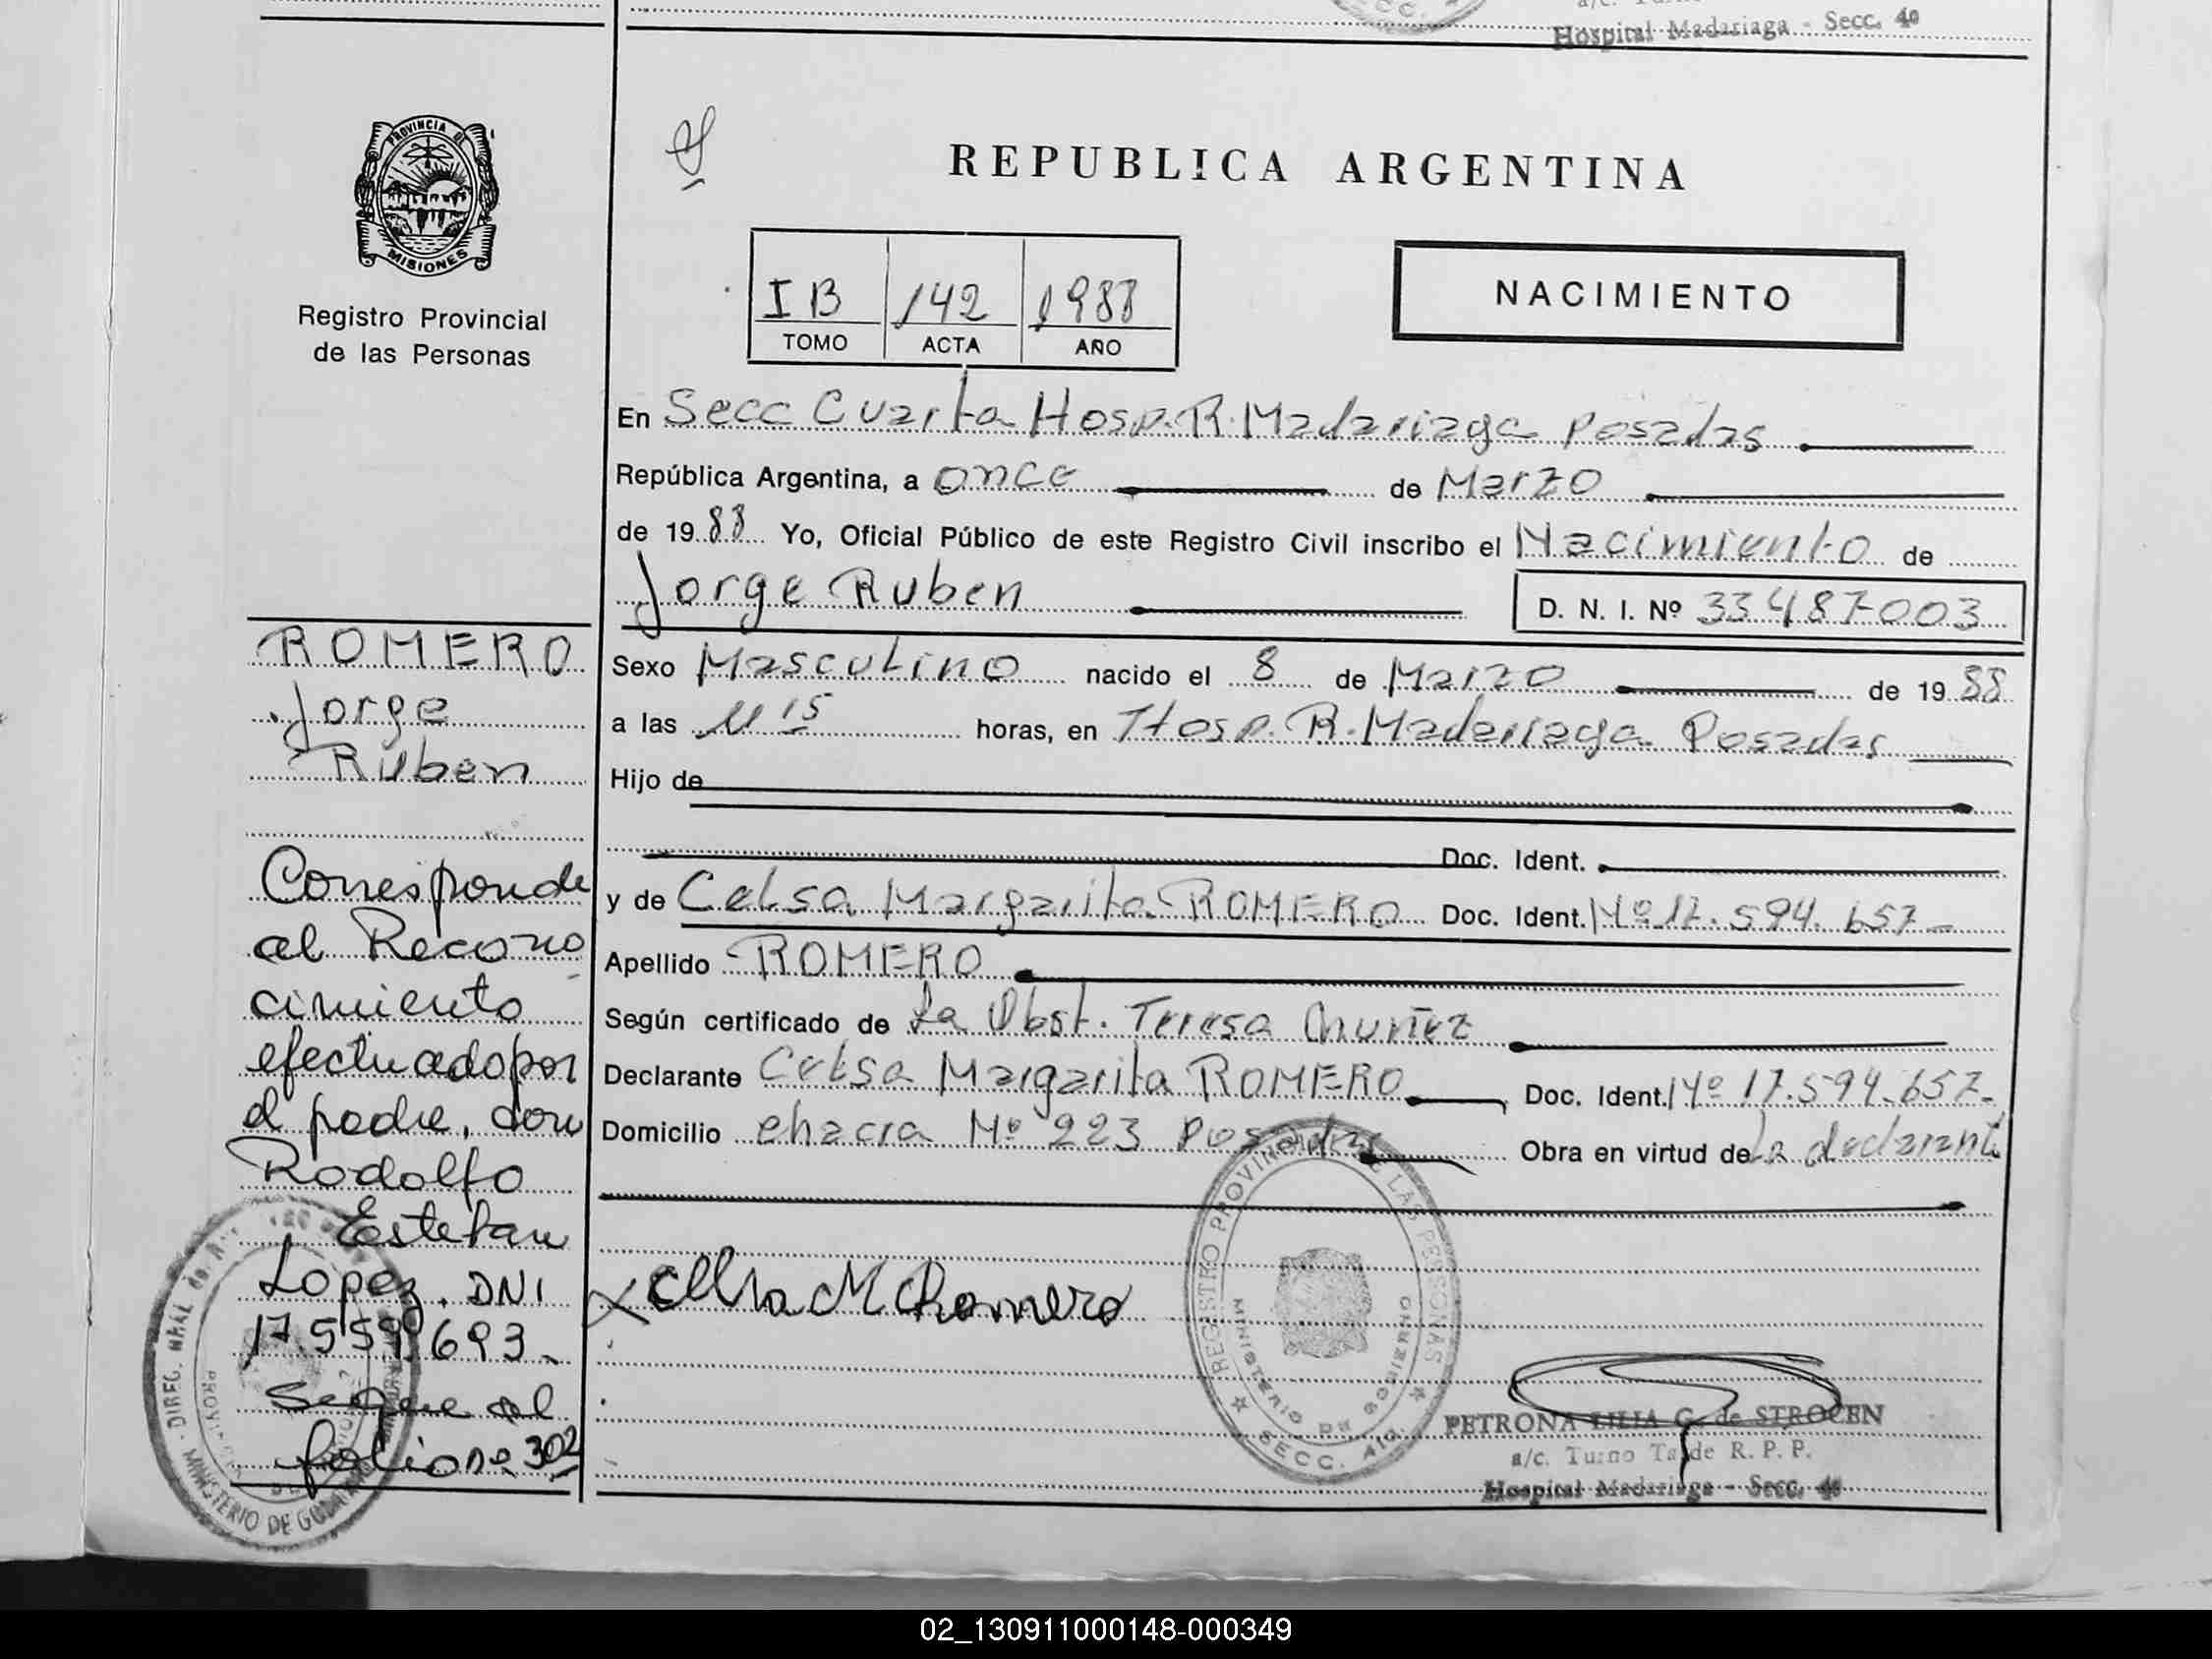 Hospital Madariaga - Secc. 4a
PROVINCIA DE
MISIONES
Registro Provincial
de las Personas
ROMERO
Jorge
Ruben
Corresponde
al Recono
cimiento
efectuado por
el padre, don
Rodolfo
Esteban
Lopez. DNI
17.559.693.
Sigue al
folio no 302
REPUBLICA ARGENTINA
IB 142 1988
TOMO ACTA AÑO
NACIMIENTO
En Secc Cuarta Hosp. R. Madariaga Posadas
República Argentina, a once de Marzo
de 1988 Yo, Oficial Público de este Registro Civil inscribo el Nacimiento de
Jorge Ruben D. N. I. Nº 33487003
Sexo Masculino nacido el 8 de Marzo de 1988
a las 11 15 horas, en Hosp. R. Madariaga Posadas
Hijo de
Doc. Ident.
y de Celsa Margarita ROMERO Doc. Ident. Nº 17.594.657
Apellido ROMERO
Según certificado de La Obst. Teresa
Declarante Celsa Margarita ROMERO Doc. Ident. Nº 17.594.657
Domicilio chacra Nº 223 Posadas Obra en virtud de La declarante
M Romero
REGISTRO PROVINCIAL DE LAS PERSONAS
MINISTERIO DE GOBIERNO
SECC. 4ta.
PETRONA LILIA G. de STROCEN
a/c. Turno Tarde R. P. P.
Hospital Madariaga - Secc. 4a
MINISTERIO DE
02_130911000148-000349